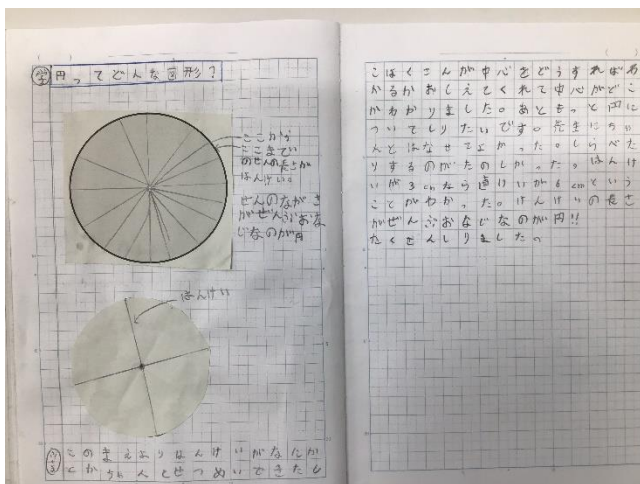 円ってどんな図形？
ここから
ここまでい
のせんのたさが
はんけい。
せんのながさ
がぜんぶおな
じなのが円
はんけい
このまえよりはんけいがなにか
とかちゃんとせつめいできたし
こはくさんが中心をどうすればわ
かるかおしえてくれて中心がどこ
かわかりました。あともっと円に
ついてしりたいです。先生にちゃ
んとはなせてよかった。しらべた
りするのがたのしかった。はんけ
いが3cmなら直けいが6cmという
ことがわかった。はんけいの長さ
がぜんぶおなじなのが円!!
たくさんしりました。